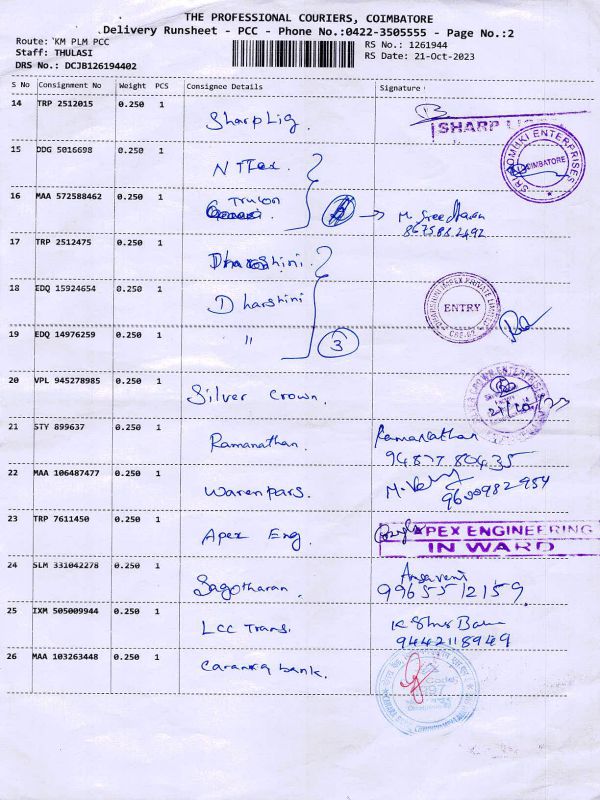 THE PROFESSIONAL COURIERS, COIMBATORE
Delivery Runsheet - PCC - Phone No.:0422-3505555 - Page No.:2
Route: KM PLM PCC
Staff: THULASI
DRS No.: DCJB126194402
RS No.: 1261944
RS Date: 21-Oct-2023
S No Consignment No Weight PCS Consignee Details Signature
14 TRP 2512015 0.250 1 Sharp Lig.
SHARP
15 DDG 5016698 0.250 1 NTTex.
SRI ENTERPRISES
COIMBATORE
16 MAA 572588462 0.250 1 M. Sreedharan
17 TRP 2512475 0.250 1 Dharshini.
18 EDQ 15924654 0.250 1 Dharshini
PRIVATE LIMITED
ENTRY
CBE-62
19 EDQ 14976259 0.250 1 "
3
20 VPL 945278985 0.250 1 Silver Crown.
21 STY 899637 0.250 1 Ramanathan. Ramanathan
22 MAA 106487477 0.250 1 Warenpars.
9600982954
23 TRP 7611450 0.250 1 Apex Eng.
APEX ENGINEERING
IN WARD
24 SLM 331042278 0.250 1 Sagotharan.
9965512159
25 IXM 505009944 0.250 1 LCC Trans.
9442118949
26 MAA 103263448 0.250 1 bank.